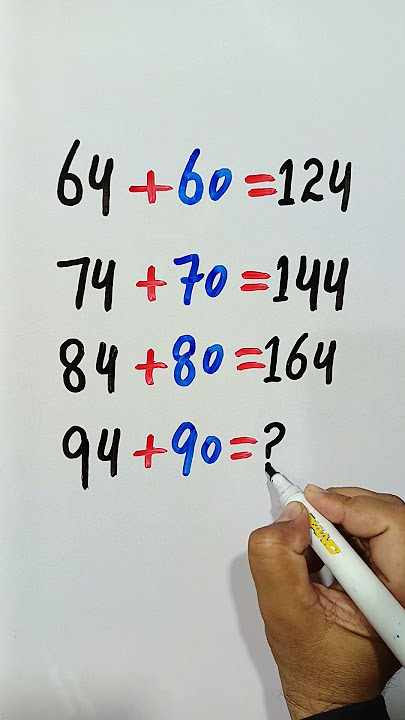 64 + 60 = 124
74 + 70 = 144
84 + 80 = 164
94 + 90 = ?